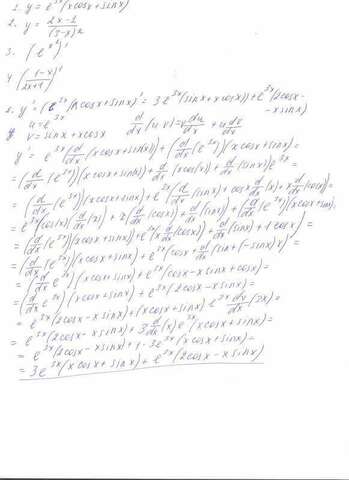 1. y = e^3x (xcosx + sinx)
2. y = (2x-1)/(5-x)^2
3. (e^x^2)'
4 ((1-x)/(2x+1))'
2. y' = (e^3x (xcosx + sinx))' = 3e^3x (sinx + xcosx) + e^3x (2cosx -
- xsinx)
u = e^3x d/dx (uv) = v du/dx + u dv/dx
v = sinx + xcosx
y' = e^3x (d/dx (xcosx + sinx)) + (d/dx (e^3x)) (xcosx + sinx) =
= (d/dx (e^3x)) (xcosx + sinx) + d/dx (xcosx) + d/dx (sinx) e^3x =
= (d/dx (e^3x)) (xcosx + sinx) + e^3x (d/dx (sinx) + cosx d/dx (x) + x d/dx (cosx)) =
= e^3x (cosx) (d/dx (x)) + x (d/dx (cosx)) + d/dx (sinx)) + (d/dx (e^3x)) (xcosx + sinx) =
= (d/dx (e^3x)) (xcosx + sinx) + e^3x (x d/dx (cosx)) + d/dx (sinx) + 1 cosx) =
= (d/dx (e^3x)) (xcosx + sinx) + e^3x (cosx + d/dx (sinx) + (-sinx) x) =
= (d/dx e^3x) (xcosx + sinx) + e^3x (cosx - xsinx + cosx) =
= (d/dx e^3x) (xcosx + sinx) + e^3x (2cosx - xsinx) =
= e^3x (2cosx - xsinx) + (xcosx + sinx) e^3x d/dx (3x) =
= e^3x (2cosx - xsinx) + 3 d/dx (x) e^3x (xcosx + sinx) =
= e^3x (2cosx - xsinx) + 1·3e^3x (xcosx + sinx) =
= 3e^3x (xcosx + sinx) + e^3x (2cosx - xsinx)